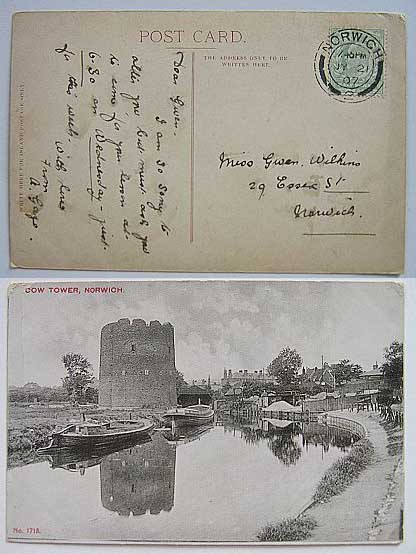 POST CARD.
THE ADDRESS ONLY TO BE
WRITTEN HERE.
NORWICH
JY 2
07
Dear Gwen.
I am so sorry to
alter you but must ask you
to come for your lesson at
6.30 on Wednesday - just
for this week. With love
from
A.
Miss Gwen. Wilkins
29 Essex St
Norwich.
COW TOWER, NORWICH.
No. 1718.